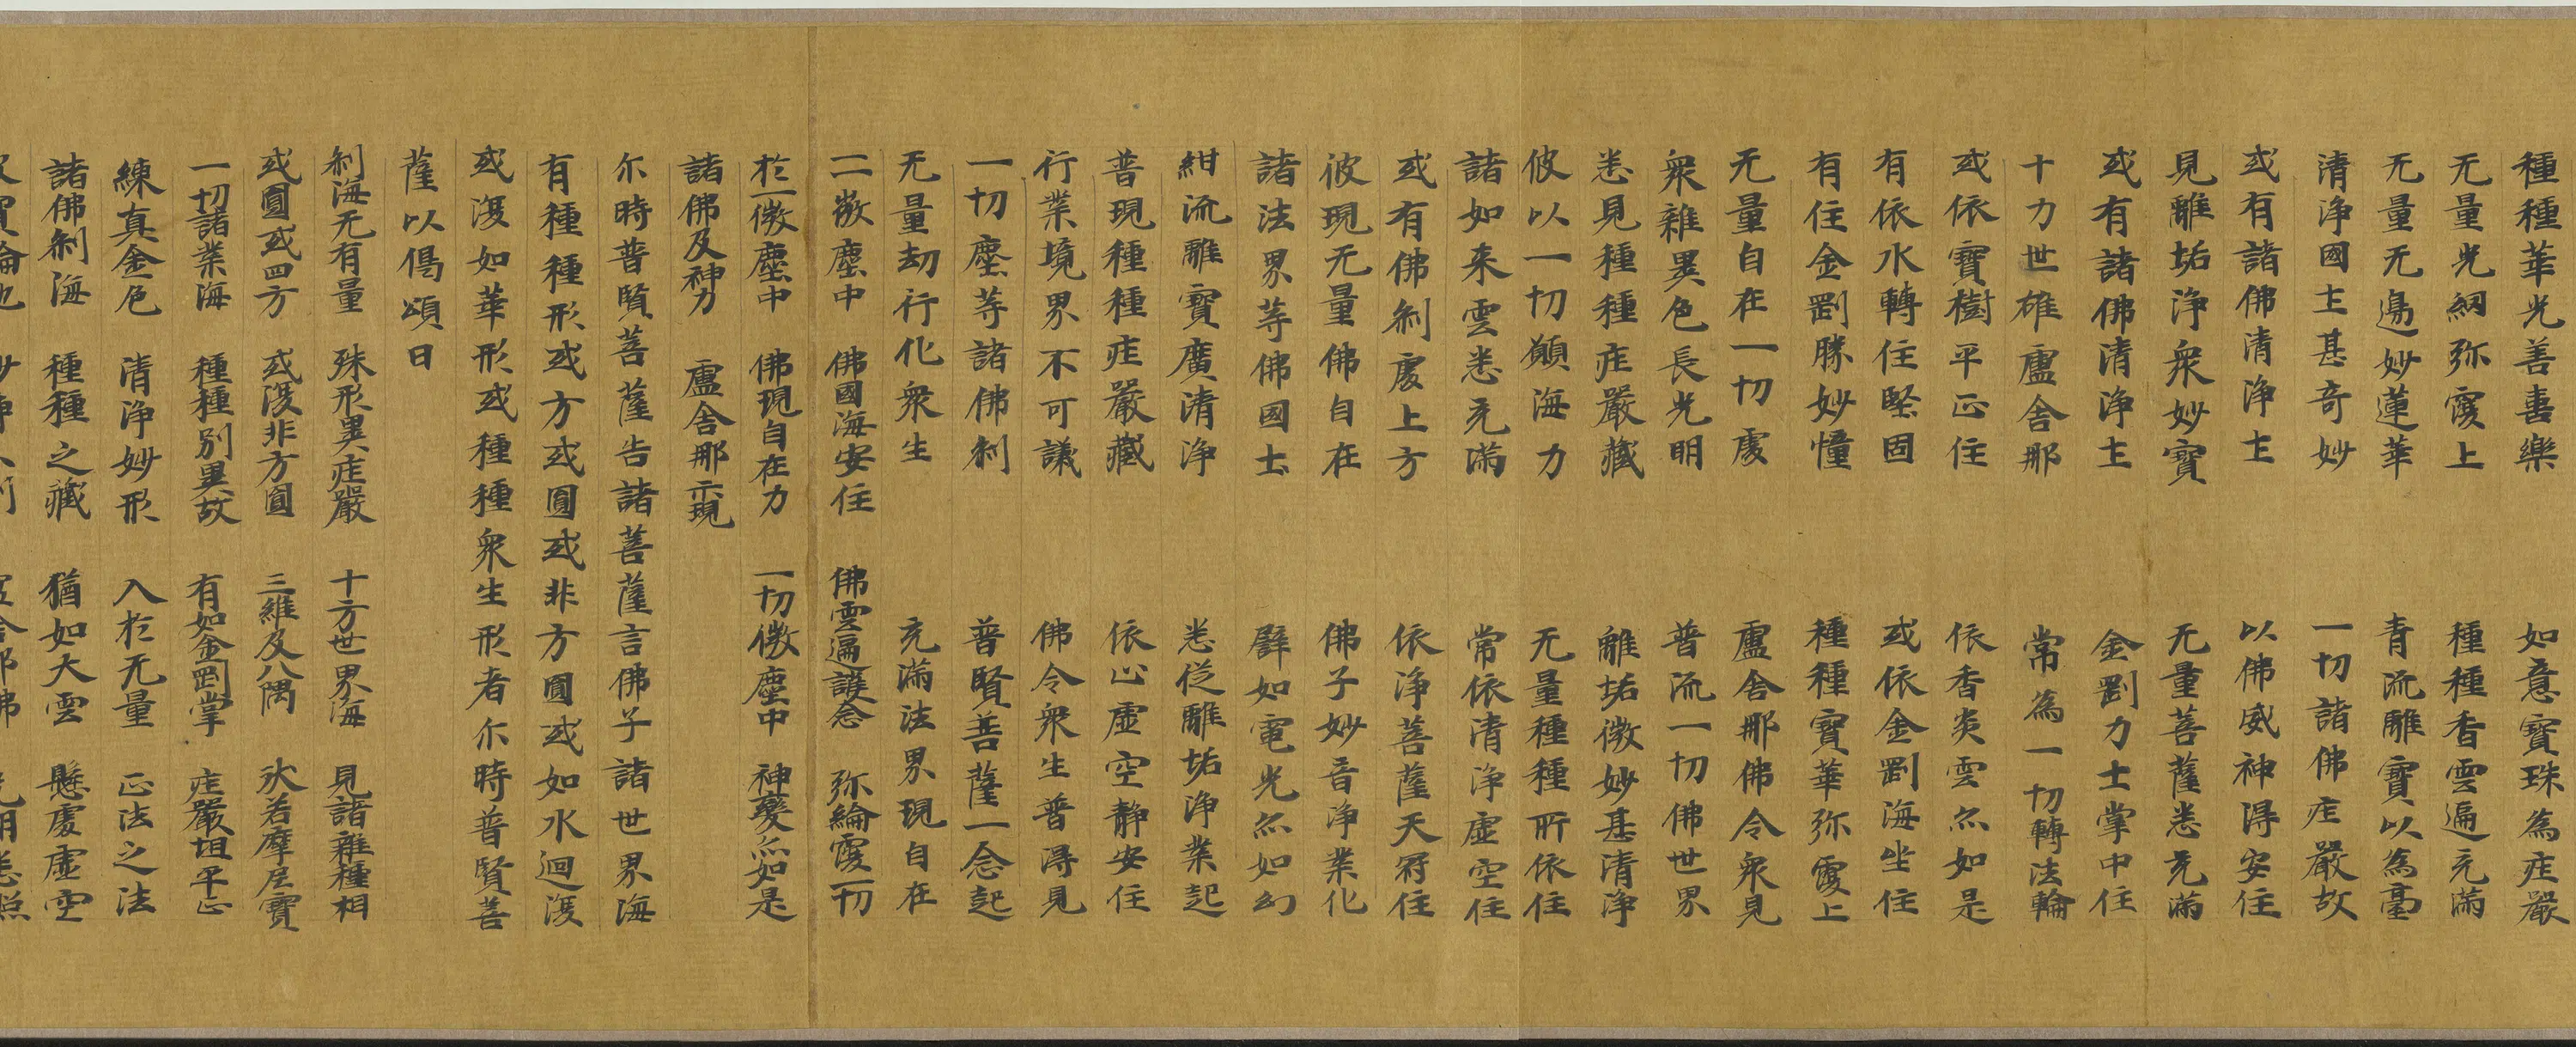 種種華光善喜樂　如意寶珠為庄嚴
无量光網弥覆上　種種香雲遍充滿
无量无邊妙蓮華　青流離寶以為臺
清淨國土甚奇妙　一切諸佛庄嚴故
或有諸佛清淨土　以佛威神得安住
見離垢淨衆妙寶　无量菩薩悉充滿
或有諸佛清淨土　金剛力士掌中住
十力世雄盧舍那　常為一切轉法輪
或依寶樹平正住　依香炎雲亦如是
有依水轉住堅固　或依金剛海坐住
有住金剛勝妙幢　種種寶華弥覆上
无量自在一切處　盧舍那佛令衆見
衆雜異色長光明　普流一切佛世界
悉見種種庄嚴藏　離垢微妙甚清淨
彼以一切願海力　无量種種所依住
諸如来雲悉充滿　常依清淨虛空住
或有佛剎處上方　依淨菩薩天冠住
彼現无量佛自在　佛子妙音淨業化
諸法界等佛國土　辟如電光亦如幻
紺流離寶廣清淨　悉従離垢淨業起
普現種種庄嚴藏　依止虛空静安住
行業境界不可議　佛令衆生普得見
一切塵等諸佛剎　普賢菩薩一念起
无量劫行化衆生　充滿法界現自在
二微塵中　佛國海安住　佛雲遍護念　弥綸覆一切
於一微塵中　佛現自在力　一切微塵中　神變亦如是
諸佛及神力　盧舍那示現
尓時普賢菩薩告諸菩薩言佛子諸世界海
有種種形或方或圓或非方圓或如水迴澓
或復如華形或種種衆生形者尓時普賢菩
薩以偈頌曰
剎海无有量　殊形異庄嚴　十方世界海　見諸雜種相
或圓或四方　或復非方圓　三維及八隅　狀若摩尼寶
一切諸業海　種種別異故　有如金剛掌　庄嚴坦平正
練真金色　清淨妙形　入於无量　正法之法
諸佛剎海　種種之藏　猶如大雲　懸處虛空